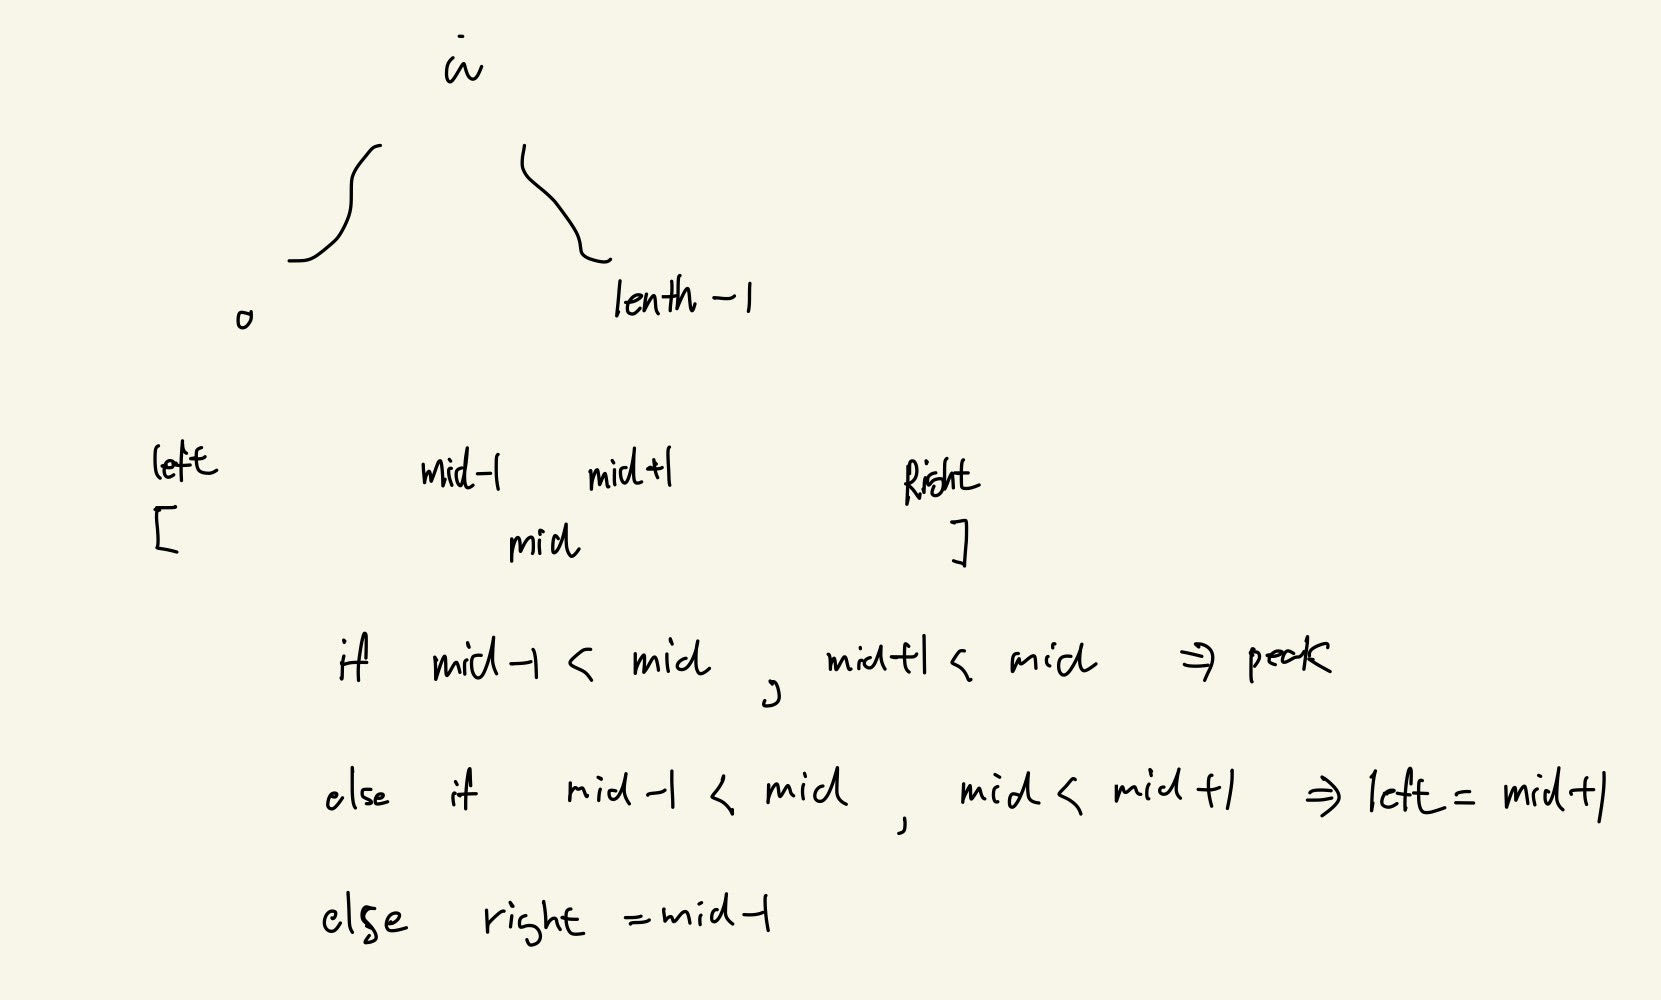 0
lenth -1
left mid-1 mid+1 Right
[ mid ]
if mid-1 < mid , mid+1 < mid ⇒ peak
else if mid-1 < mid , mid < mid+1 ⇒ left = mid+1
else right = mid-1